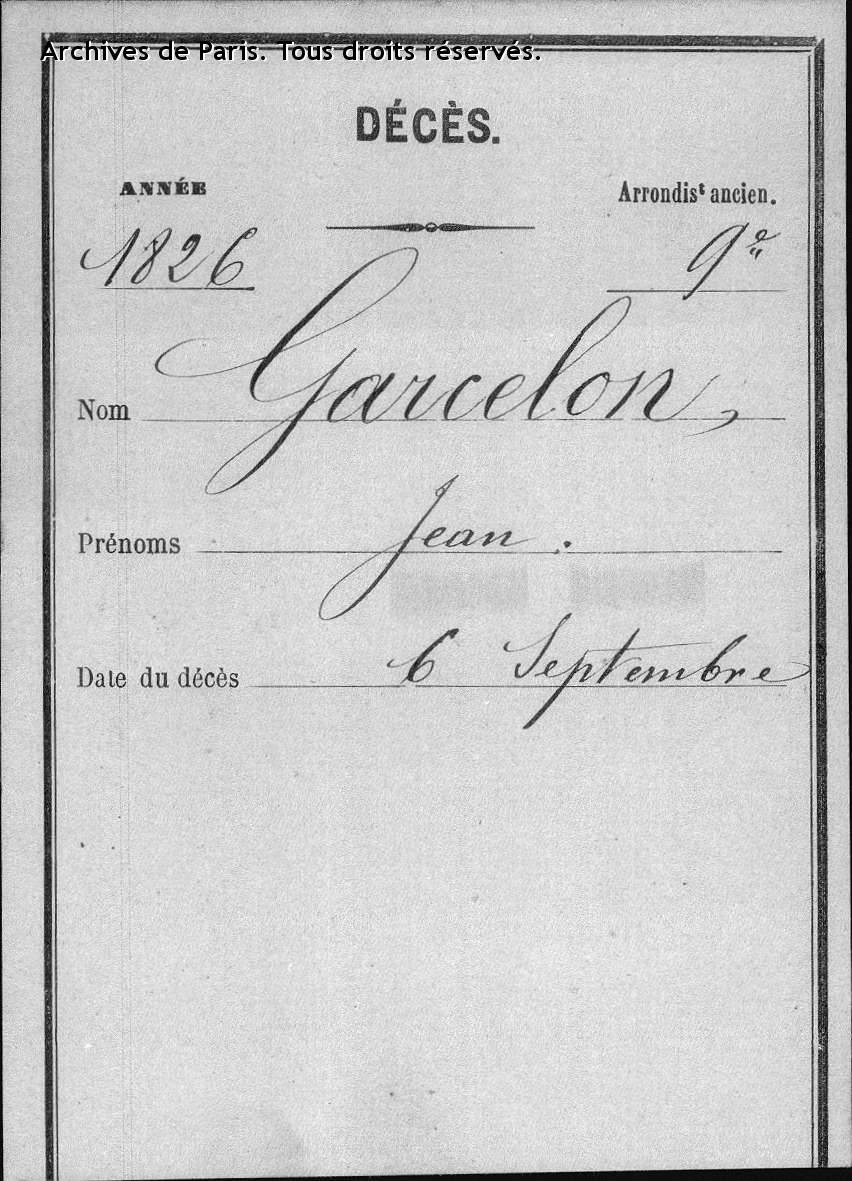 Archives de Paris. Tous droits réservés.
DÉCÈS.
ANNÉE
Arrondist ancien.
1826
9e
Nom Garcelon,
Prénoms Jean.
Date du décès 6 Septembre